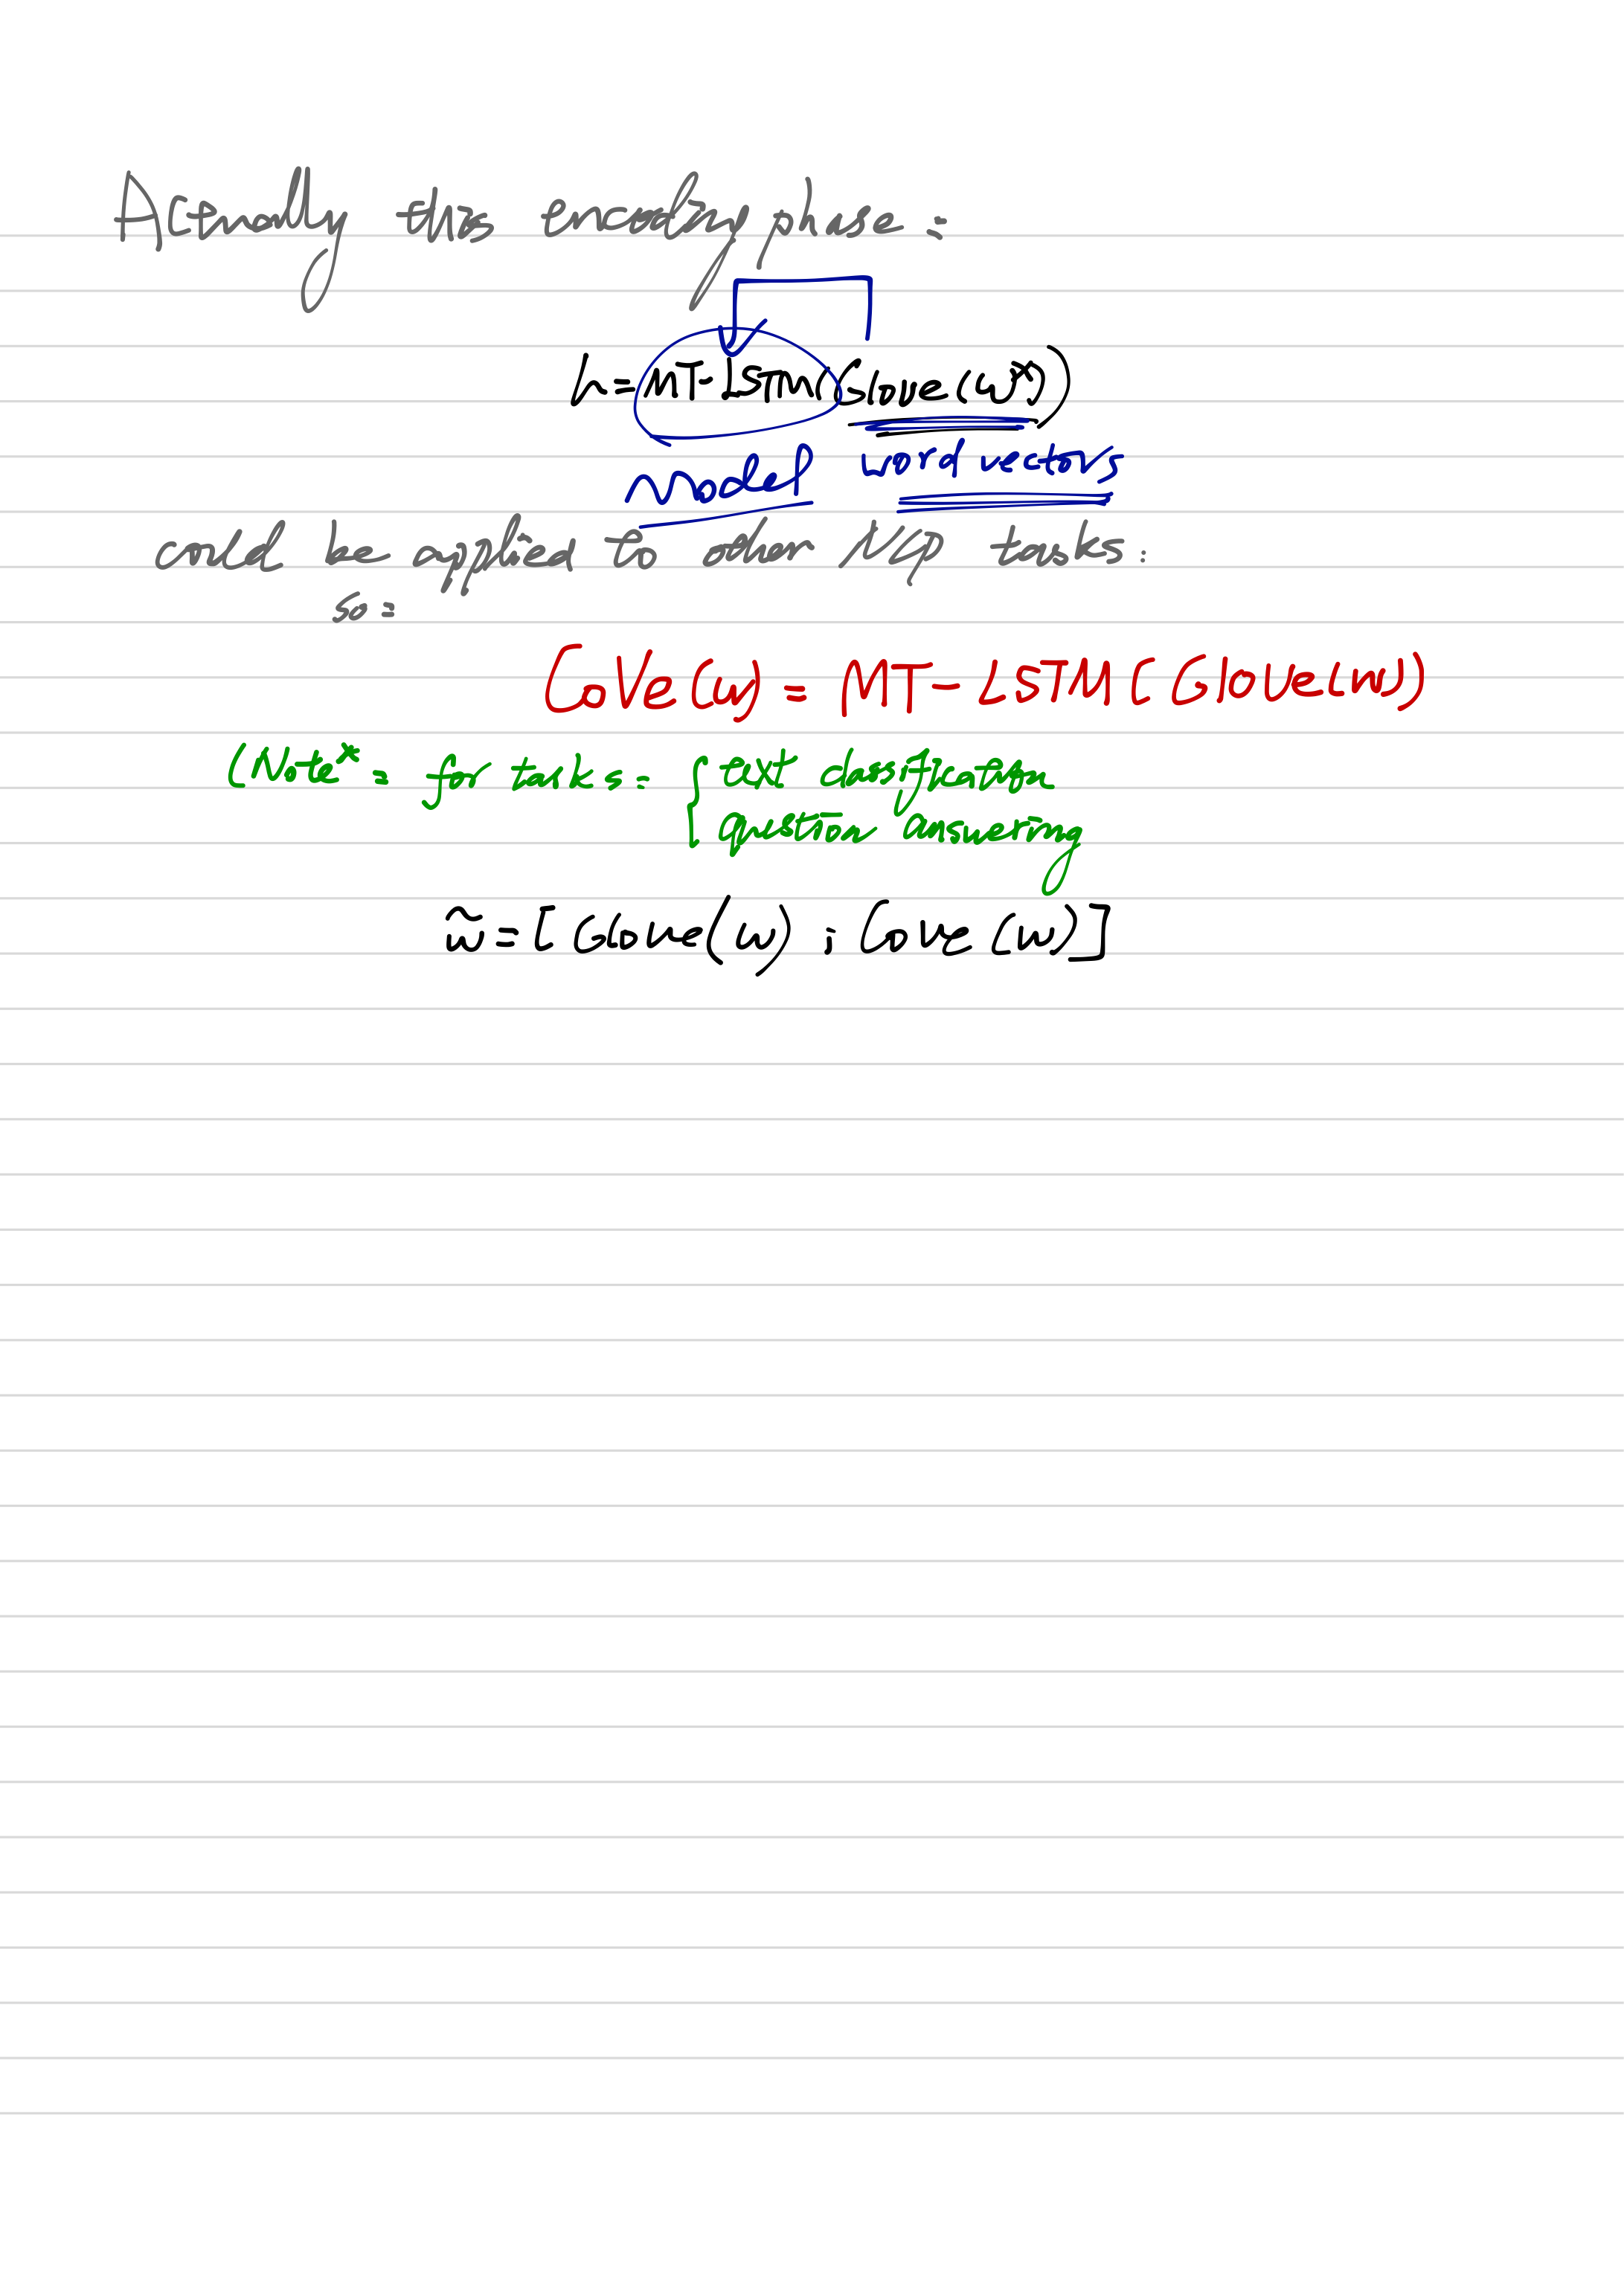 Actually this encoding phase :
h = MT-LSTM(Glove(w^x))
Model word vectors
could be applied to other NLP tasks :
so :
CoVe(w) = MT-LSTM(Glove(w))
(Note* : for tasks : { text classification
question answering
w̃ = [Glove(w) ; Cove(w)]